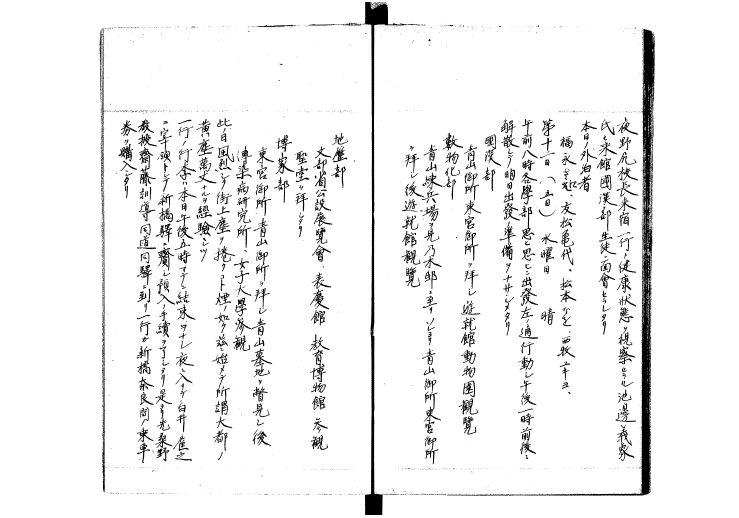 夜野尻校長来宿一行ノ健康状態ヲ視察セラル池邊義象
氏モ来館國漢部生徒ニ面會セラレタリ
本日ノ外泊者
福永 友松亀代、松本 ユキヨ、
第十一日（五日） 水曜日 晴
午前八時各學部思ヒ思ヒニ出發左ノ通行動シ午後一時前後ニ
解散シテ明日出發ノ準備ヲナサシメタリ
國漢部
青山御所東宮御所ヲ拝シ遊就館動物園觀覧
數物化部
青山練兵場ヲ見乃木邸ニ至リソレヨリ青山御所東宮御所
ヲ拝シ後遊就館觀覧
地歴部
文部省公設展覧會、表慶館、教育博物館ノ参觀
聖堂ヲ拝シタリ
博家部
東宮御所青山御所ヲ拝シ青山墓地ヲ瞥見シ後
傳染病研究所、女子大學参觀
此ノ日風烈シク街上塵ヲ捲クコト煙ノ如ク
黄塵萬丈ナルヲ經験シツ
一行ノ行李ハ本日午後五時マデニ結束ヲナシ夜ニ入リテ白井
二字頭トシテ新橋驛ニ齎シ預入ノ手續ヲ了シタリ是ヨリ先桑野
教授齋藤訓導同道同驛ニ到リ一行ガ新橋奈良間ノ乗車
券ヲ購入シタリ